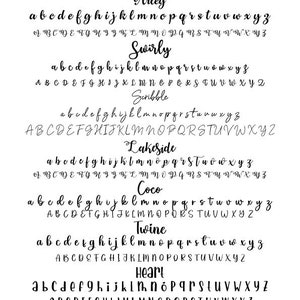 a b c d e f g h i j k l m n o p q r s t u v w x y z
A B C D E F G H I J K L M N O P Q R S T U V W X Y Z
Swirly
a b c d e f g h i j k l m n o p q r s t u v w x y z
A B C D E F G H I J K L M N O P Q R S T U V W X Y Z
Scribble
a b c d e f g h i j k l m n o p q r s t u v w x y z
A B C D E F G H I J K L M N O P Q R S T U V W X Y Z
Lakeside
a b c d e f g h i j k l m n o p q r s t u v w x y z
A B C D E F G H I J K L M N O P Q R S T U V W X Y Z
Coco
a b c d e f g h i j k l m n o p q r s t u v w x y z
A B C D E F G H I J K L M N O P Q R S T U V W X Y Z
Twine
a b c d e f g h i j k l m n o p q r s t u v w x y z
A B C D E F G H I J K L M N O P Q R S T U V W X Y Z
Heart
a b c d e f g h i j k l m n o p q r s t u v w x y z
A B C D E F G H I J K L M N O P Q R S T U V W X Y Z